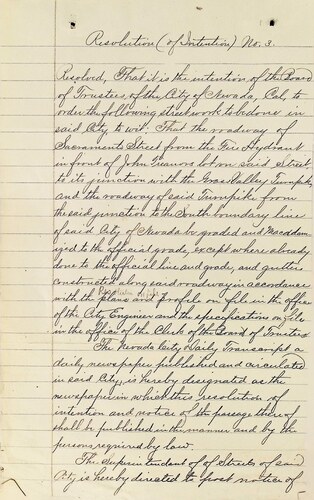 Resolution (of Intention) No. 3.
Resolved, That it is the intention of the Board
of Trustees of the City of Nevada, Cal, to
order the following street work to be done in
said City, to wit: That the roadway of
Sacramento Street from the Fire Hydrant
in front of John lot on said Street
to its junction with the Grass Valley Turnpike,
and the roadway of said Turnpike from
the said junction to the South boundary line
of said City of Nevada be graded and Macadam-
ized to the official grade, except where already
done to the official line and grade, and gutters
constructed along said roadway in accordance
with the plans and profile on file in the office
of the City Engineer and the specification on file
in the office of the Clerk of the Board of Trustees
The Nevada City Daily Transcript a
daily newspaper published and circulated
in said City, is hereby designated as the
newspaper in which this resolution of
intention and notice of the passage thereof
shall be published in the manner and by the
persons required by law.
The Superintendent of of Streets of said
City is hereby directed to post notice of